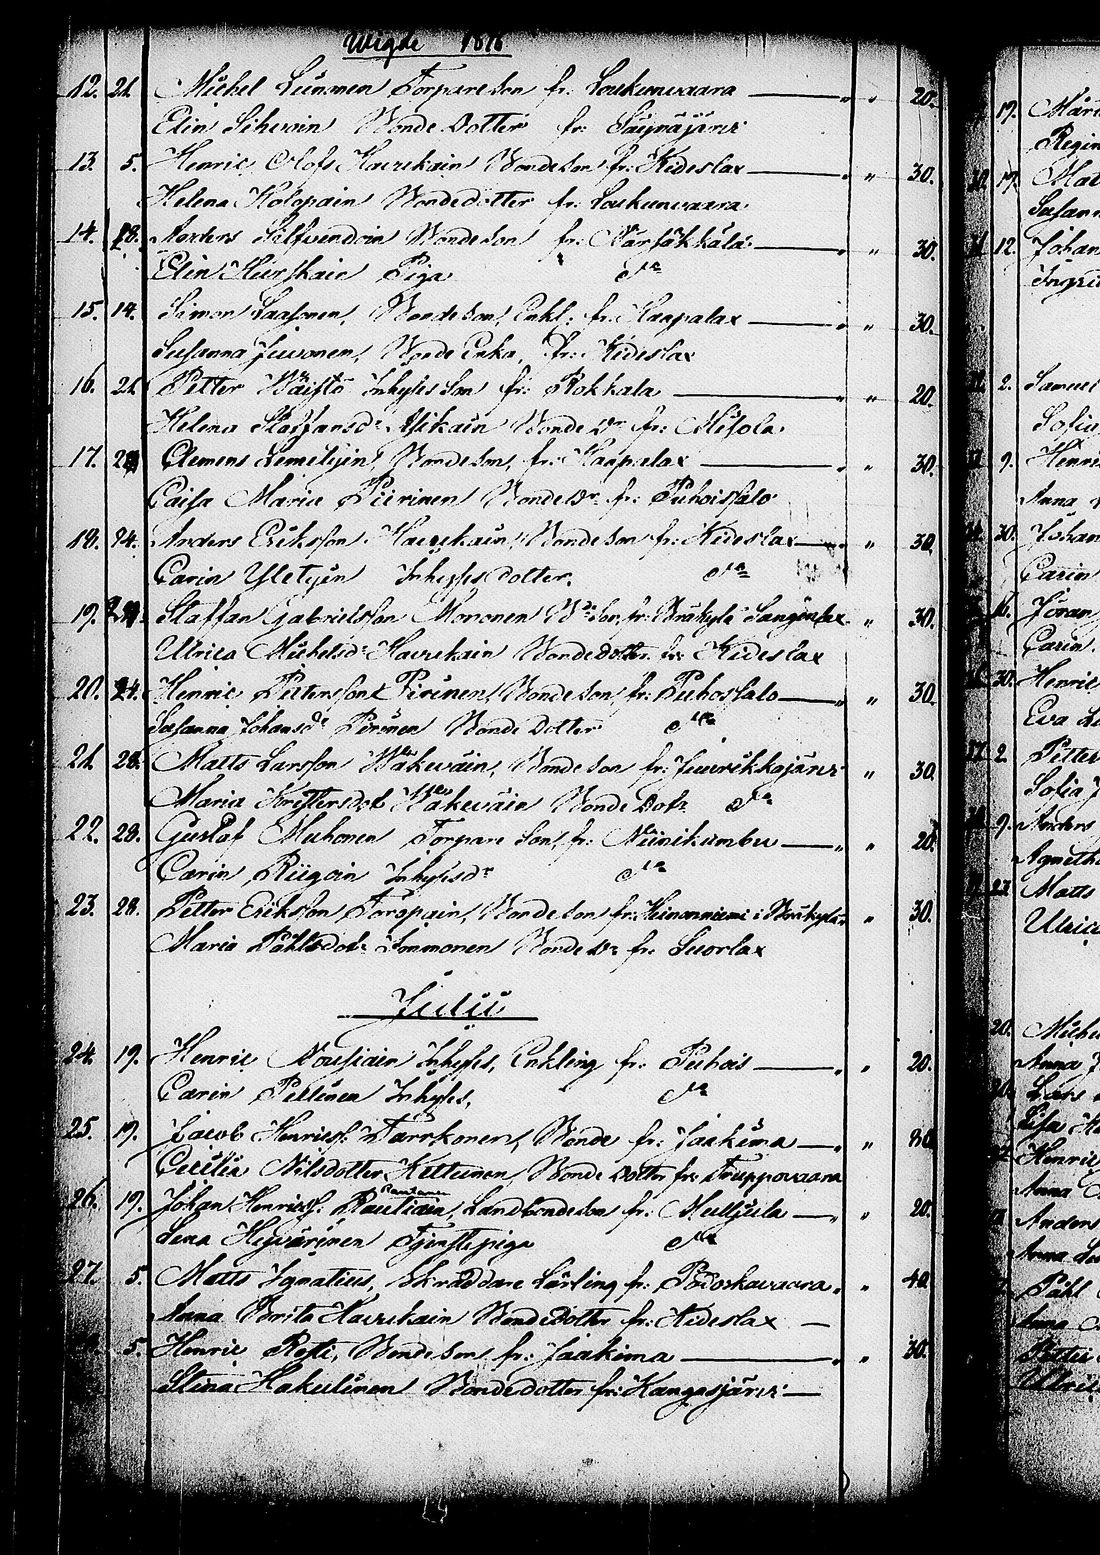 Wigde 1818
12. 21. Michel Lünmen Torpareson fr. Loukunvaara — " " 20.
Elin Sihvoin Bonde Dotter fr. Säynäjärvi
13. 5. Henric Olofs. Havukain Bondeson fr. Kideslax — " " 30.
Helena Holopain Bondedotter fr. Loukunvaara
14. 18. Anders Silfvendoin Bondeson fr. Närsäkkälä — " " 30.
Elin Hurskain Piga Dito
15. 14. Simon Laasonen, Bondeson, Enkl: fr. Haapalax — " " 30.
Susanna Juvonen, Bonde Enka, fr. Kideslax
16. 21. Petter Wäistö Inhyses Son fr. Rokkala — " " 20.
Helena Staffansdr Asikain Bonde Dr fr. Misola
17. 28. Clemens Lemetyin, Bondeson, fr. Haapalax — " " 30.
Caisa Maria Piirinen Bonde Dr. fr. Puhoissalo
18. 24. Anders Eriksson Havukain, Bondeson fr. Kideslax — " " 30.
Carin Yletyin Inhyses dotter. Dito
19. Staffan Gabrielsson Mononen Bd Son, fr. Bräkylä " 30.
Ulrica Michelsdr Havukain Bondedotter fr. Kideslax
20. 24. Henric Pettersson Pirinen, Bondeson, fr. Puhossalo — " " 30.
Susanna Johansdr Pirinen Bonde Dotter Dito
21. 28. Matts Larsson Wäkeväin, Bondeson fr. Juurikkajärvi " 30.
Maria Kristersdot. Wäkeväin Bonde Dotr Dito
22. 28. Gustaf Muhonen Torpare Son, fr. Niinikumbu — " " 20.
Carin Riigoin Inhysesdr Dito
23. 28. Petter Eriksson Toropain, Bondeson fr. Heinoniemi i Bräkylä " 30.
Maria Påhlsdotr Immonen Bonde Dr fr. Suorlax
Julii
24. 19. Henric Nousiain Inhyses, Enkling fr. Puhois — " " 20.
Carin Pellinen Inhyses, Dito
25. 19. Jacob Henricss. Tarkkonen, Bonde fr. Jaakima — " " 30.
Cecilia Nilsdotter Kettunen, Bonde Dotter fr. Truppovaara
26. 19. Johan Henricss. Rautiain, Landbondeson fr. Muljula — " " 20.
Lena Hyvärinen Tjenstepiga Dito
27. 5. Matts Ignatius, Skräddare Lärling fr. Podoskavaara " " 40.
Anna Brita Havukain Bondedotter fr. Kideslax —
5. Henric Repti, Bondeson fr. Jaakima — " " 30.
Stina Hakulinen Bondedotter fr. Kangasjärvi —
19.
Regin
19. Mat
Susann
12. Johan
Ingri
2. Samuel
Sofia
9. Henri
Anna
30. Johan
Carin
16. Jöran
Carin
30. Henric
Eva
2. Petter
Sofia
9. Anders
Agnetha
Matts
Ulrica
20. Michel
Anna
Lars
Lisa
Henric
Anna
Anders
Anna
Påhl
Anna
Petter
Ulrica